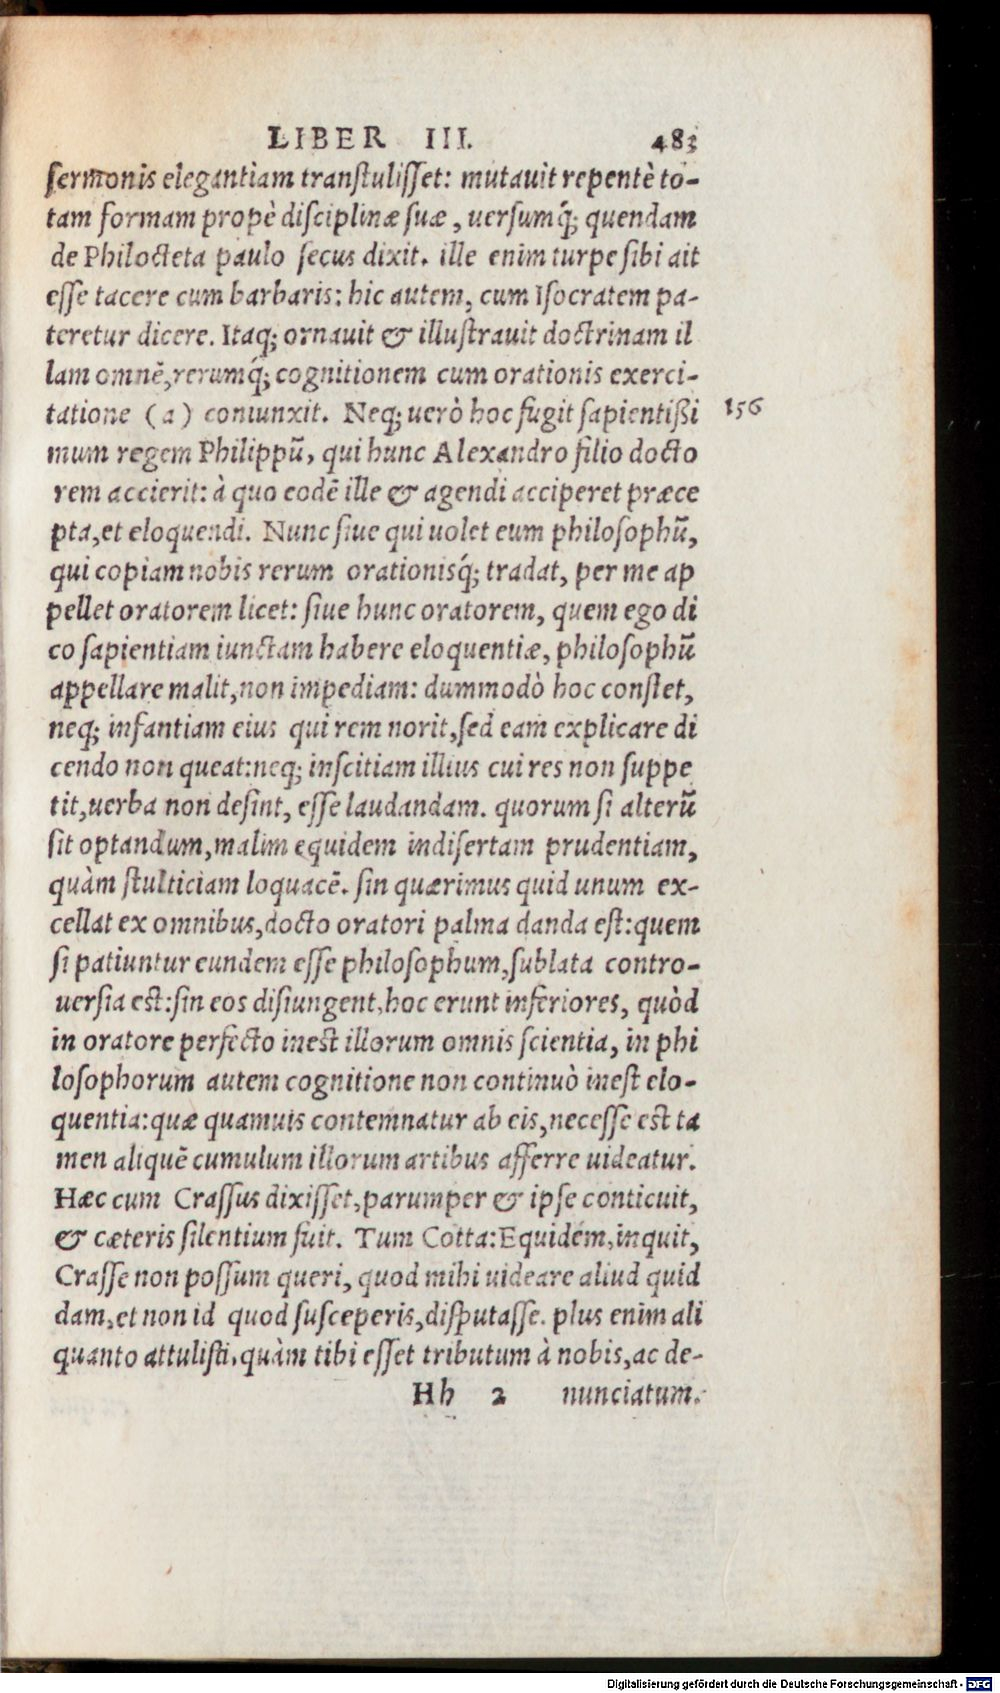 LIBER III. 483
sermonis elegantiam transtulisset: mutauit repentè to-
tam formam propè disciplinæ suæ, uersumq́; quendam
de Philocteta paulo secus dixit. ille enim turpe sibi ait
esse tacere cum barbaris: hic autem, cum Isocratem pa-
teretur dicere. Itaq; ornauit & illustrauit doctrinam il
lam omnē, rerumq́; cognitionem cum orationis exerci-
tatione (a) coniunxit. Neq; uerò hoc fugit sapientißi 156
mum regem Philippū, qui hunc Alexandro filio docto
rem accierit: à quo eodē ille & agendi acciperet præce
pta, et eloquendi. Nunc siue qui uolet eum philosophū,
qui copiam nobis rerum orationisq́; tradat, per me ap
pellet oratorem licet: siue hunc oratorem, quem ego di
co sapientiam iunctam habere eloquentiæ, philosophū
appellare malit, non impediam: dummodò hoc constet,
neq; infantiam eius qui rem norit, sed eam explicare di
cendo non queat: neq; inscitiam illius cui res non suppe
tit, uerba non desint, esse laudandam. quorum si alterū
sit optandum, malim equidem indisertam prudentiam,
quàm stulticiam loquacē. sin quærimus quid unum ex-
cellat ex omnibus, docto oratori palma danda est: quem
si patiuntur eundem esse philosophum, sublata contro-
uersia est: sin eos disiungent, hoc erunt inferiores, quòd
in oratore perfecto inest illorum omnis scientia, in phi
losophorum autem cognitione non continuò inest elo-
quentia: quæ quamuis contemnatur ab eis, necesse est ta
men aliquē cumulum illorum artibus afferre uideatur.
Hæc cum Crassus dixisset, parumper & ipse conticuit,
& cæteris silentium fuit. Tum Cotta: Equidem, inquit,
Crasse non possum queri, quod mihi uideare aliud quid
dam, et non id quod susceperis, disputasse. plus enim ali
quanto attulisti, quàm tibi esset tributum à nobis, ac de-
Hh 2 nunciatum.
Digitalisierung gefördert durch die Deutsche Forschungsgemeinschaft - DFG